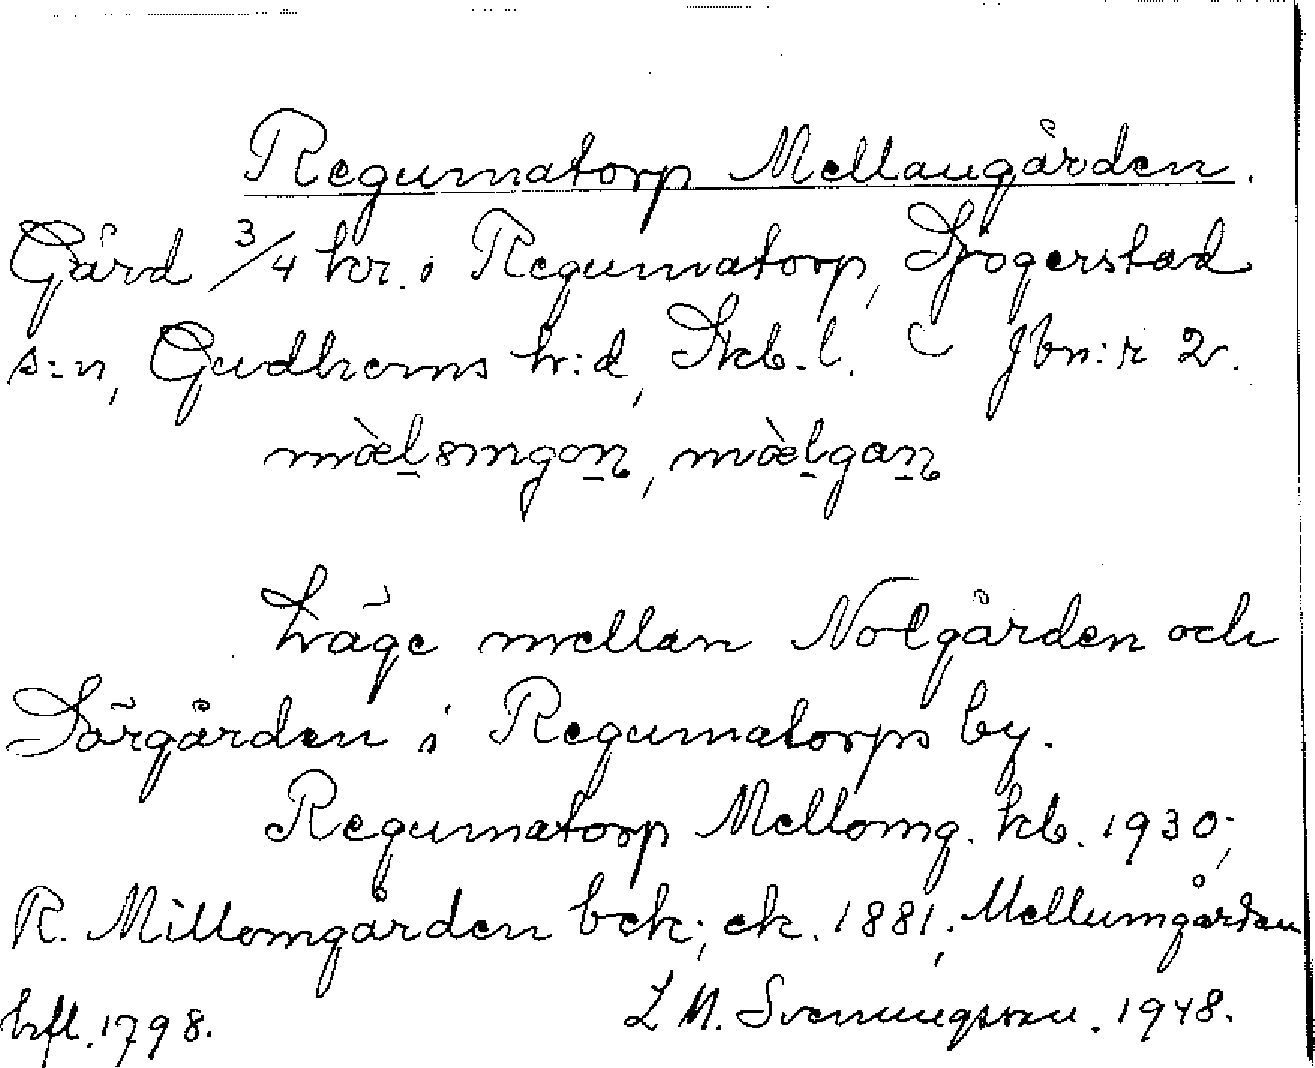 Regumatorp Mellangården.
Gård 3/4 hr. i Regumatorp, Sjogerstad
s:n, Gudhems h:d, Skb. l. C Jbn:r 2.
mæ̀lomgon, mæ̀lgan
Läge mellan Nolgården och
Sörgården i Regumatorps by.
Regumatorp Mellomg. kb. 1930;
R. Millomgården bek; ek. 1881; Mellumgården
hfl. 1798. L M. Svenungsson. 1948.